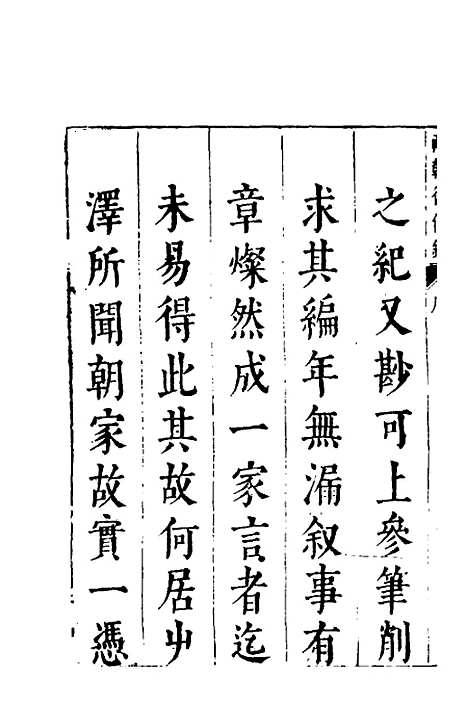 之紀又尠可上參筆削
求其編年無漏叙事有
章燦然成一家言者迄
未易得此其故何居屮
澤所聞朝家故實一憑